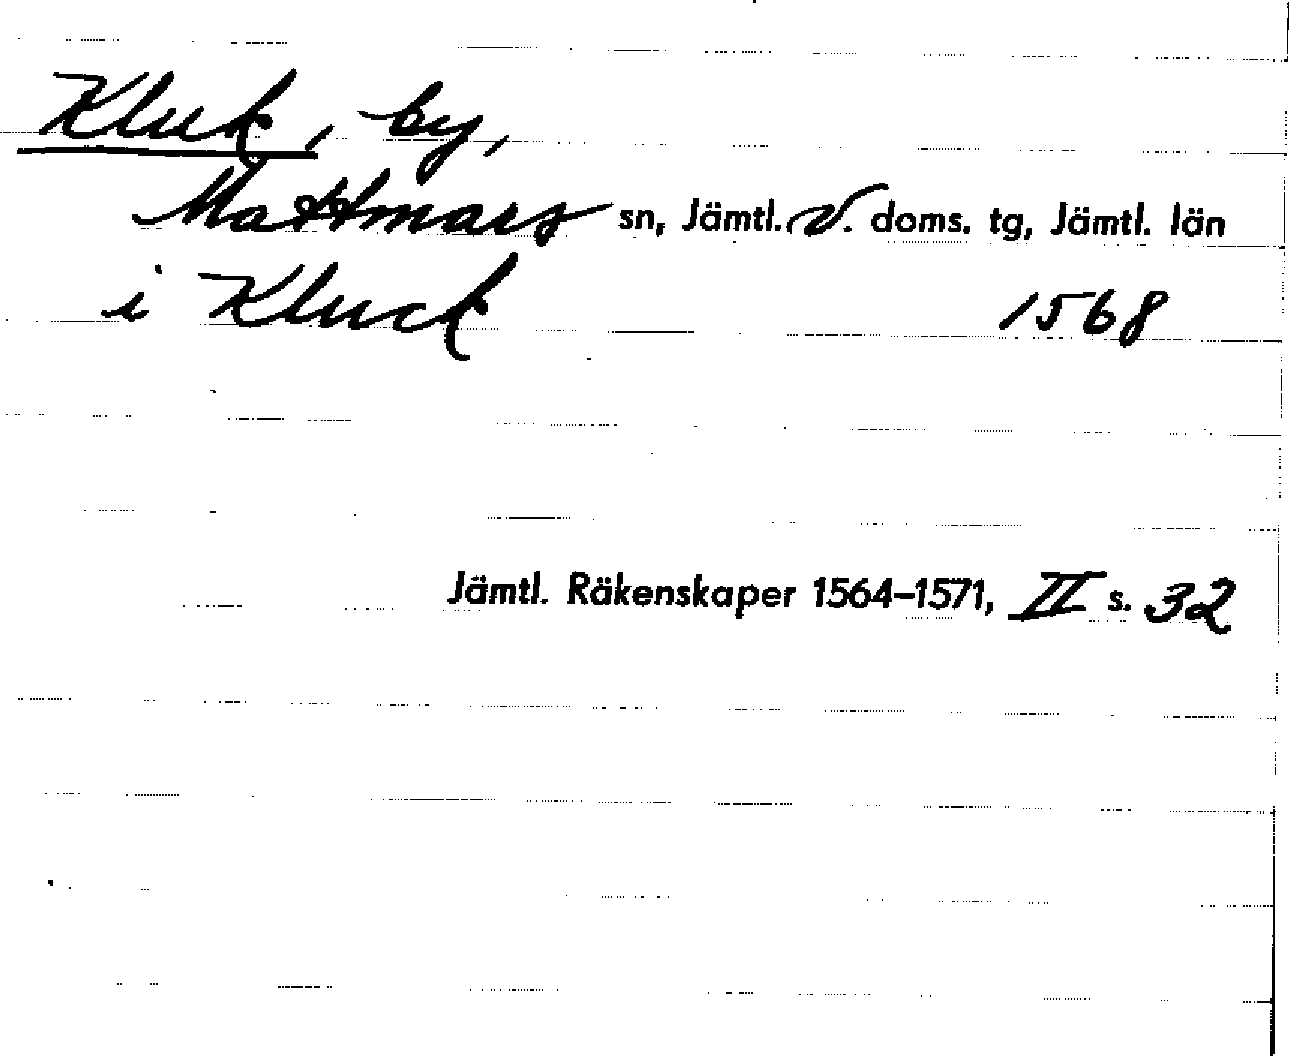 Kluk, by,
Mattmars sn, Jämtl. V. doms. tg, Jämtl. län
i Kluck 1568
Jämtl. Räkenskaper 1564–1571, II s. 32